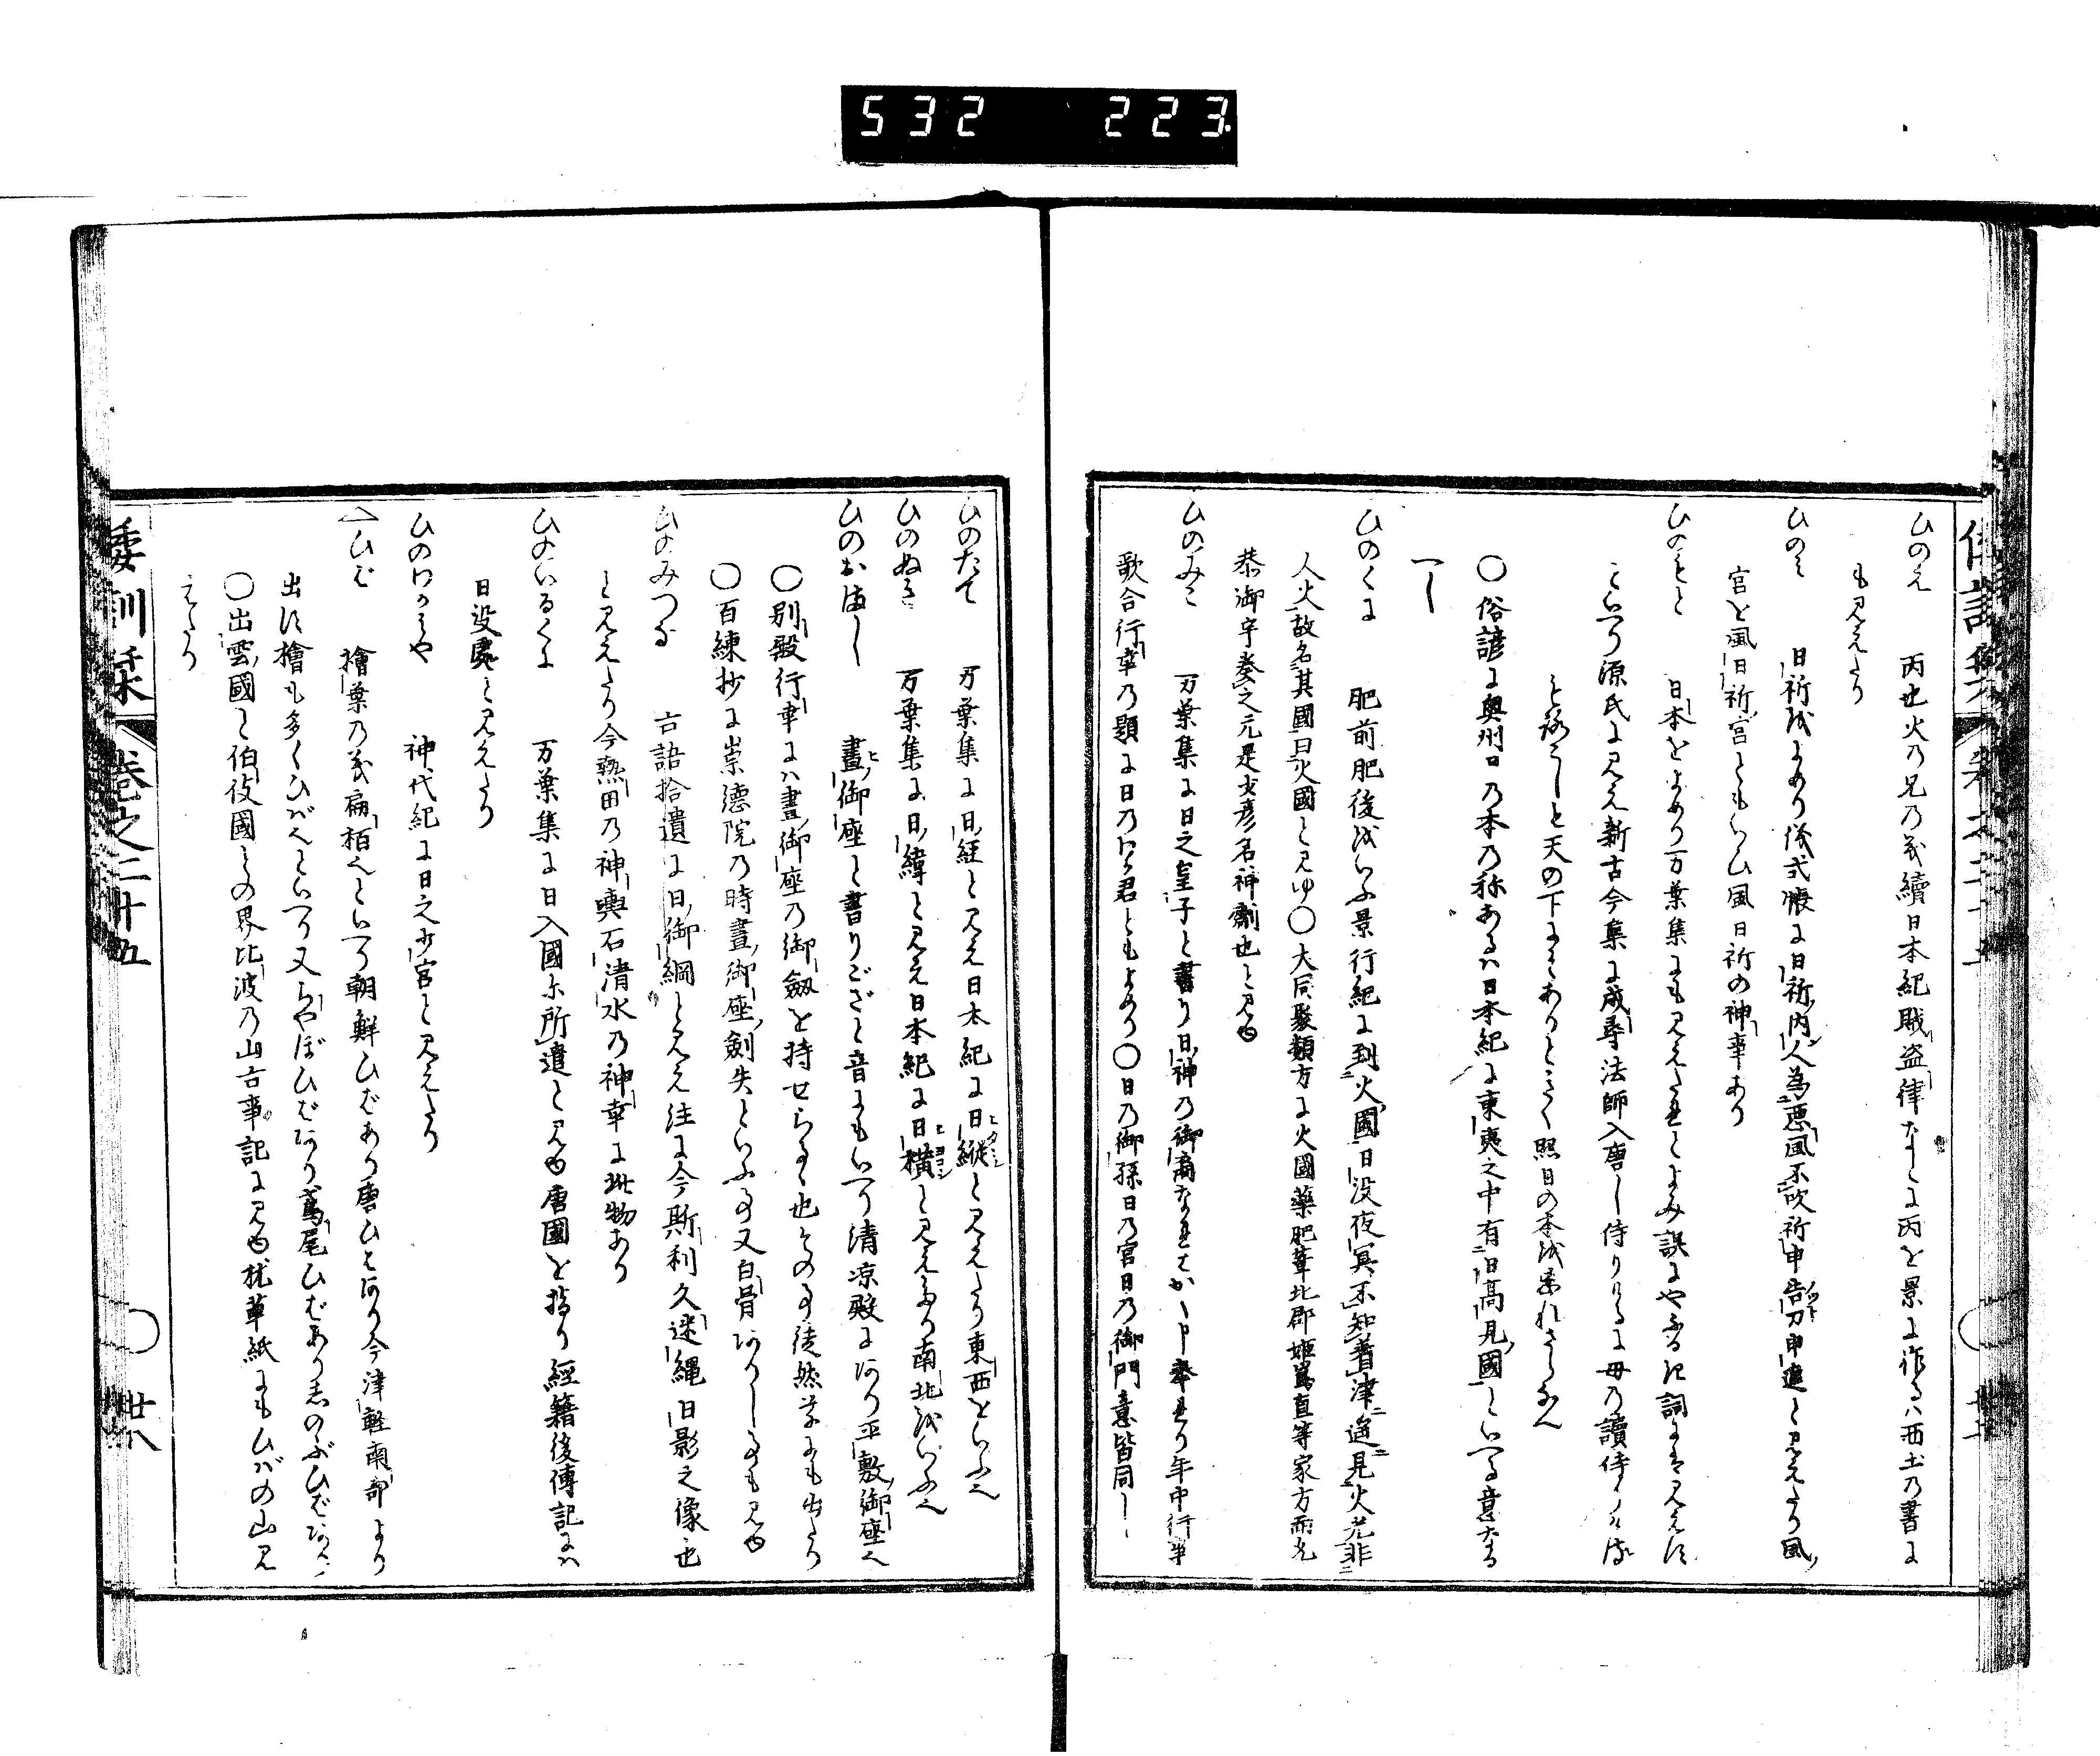 532 223
ひのえ 丙也火乃兄乃義續日本紀賊盗律なとに丙を景に作るハ西土乃書に
も見えたり
日祈をよめり儀式帳に日祈内人為悪風不吹祈申告刀申進と見えたり風
宮を風日祈宮ともいひ風日祈の神事あり
ひのもと 日本をよめり万葉集にも見えたれとよみ誤にやふるき詞には見えす
といへり源氏に見え新古今集に成尋法師入唐し侍りけるに母乃讀侍りける
もろこしも天の下にそありときく照日の本を忘れさらなん
○俗諺に奥州日乃本乃称あるハ日本紀に東夷之中有日高見國といへる意なる
へし
ひのくに 肥前肥後をいふ景行紀に到火國日没夜冥不知着津遥見火光非
人火故名其國曰火國と見ゆ○大同聚類方に火國藥肥葦北郡姫嶌直等家方而元
恭御宇奏之元是少彦名神劑也と見ゆ
ひのみこ 万葉集に日之皇子と書り日神乃御裔なれはかく申奉れり年中行事
歌合行幸乃題に日乃わか君ともよめり○日乃御孫日乃宮日乃御門意皆同し
ひのたて 万葉集に日経と見え日本紀に日縦と見えたり東西をいふ也
ひのぬき 万葉集に日緯と見え日本紀に日横と見えたり南北をいふ也
ひのおまし 晝御座と書りござと音にもいへり清凉殿にあり平敷御座也
○別殿行幸にハ晝御座乃御劔を持せらるゝ也その事徒然草にも出たり
○百練抄に崇德院乃時晝御座劔失といふ事又白骨ありし事も見ゆ
ひのみつな 古語拾遺に日御綱と見え注に今斯利久迷縄日影之像也
と見えたり今熱田乃神輿石清水乃神幸に此物あり
ひのいるくに 万葉集に日入國尓所遣と見ゆ唐國を指り經籍後傳記にハ
日没處と見えたり
ひのわかみや 神代紀に日之少宮と見えたり
ひば 檜葉乃義扁栢也といへり朝鮮ひばあり唐ひばあり今津軽南部より
出す檜も多くひば也といへり又ちやぼひばあり鳶尾ひばあり志のぶひばあり
○出雲國と伯伎國との界比波乃山古事記に見ゆ枕草紙にもひばの山見
えたり
倭訓栞 巻之二十五 卅八